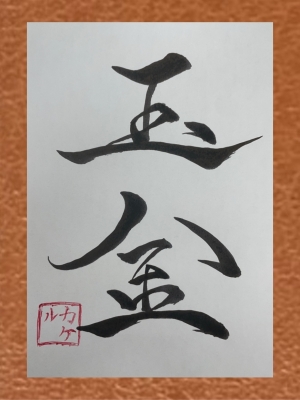 玉金
カケ
ル